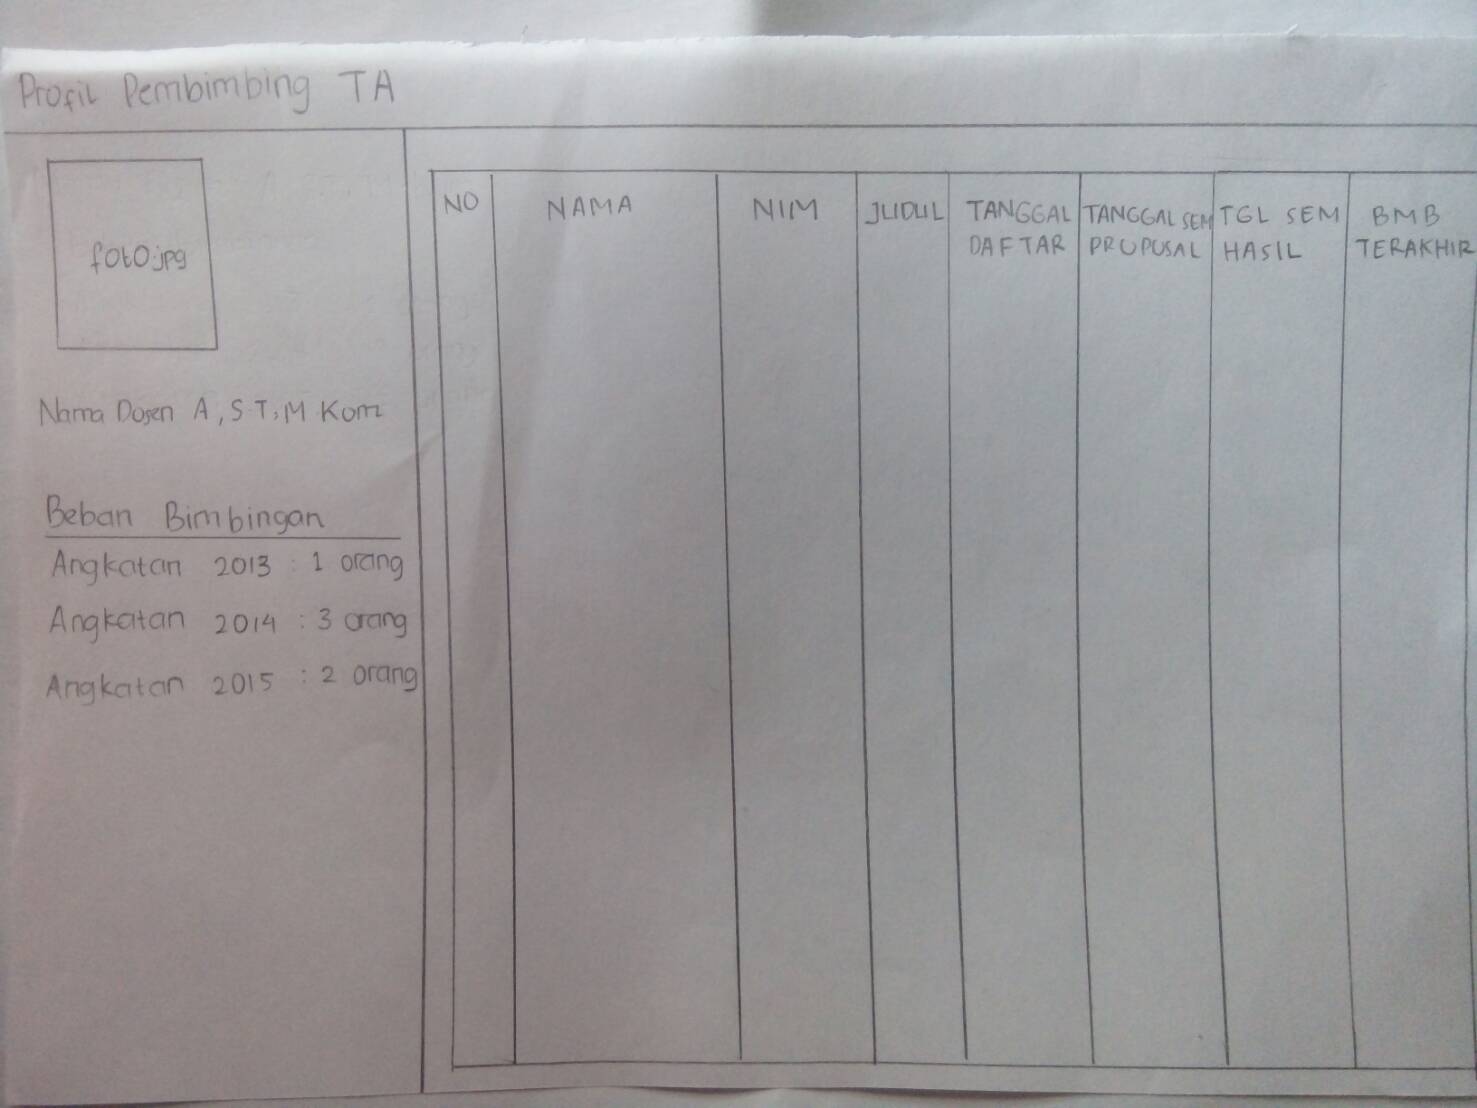 Profil Pembimbing TA
foto.jpg
Nama Dosen A, ST, M Kom
Beban Bimbingan
Angkatan 2013 : 1 orang
Angkatan 2014 : 3 orang
Angkatan 2015 : 2 orang
NO
NAMA
NIM
JUDUL
TANGGAL
DAFTAR
TANGGAL SEM
PROPOSAL
TGL SEM
HASIL
BMB
TERAKHIR